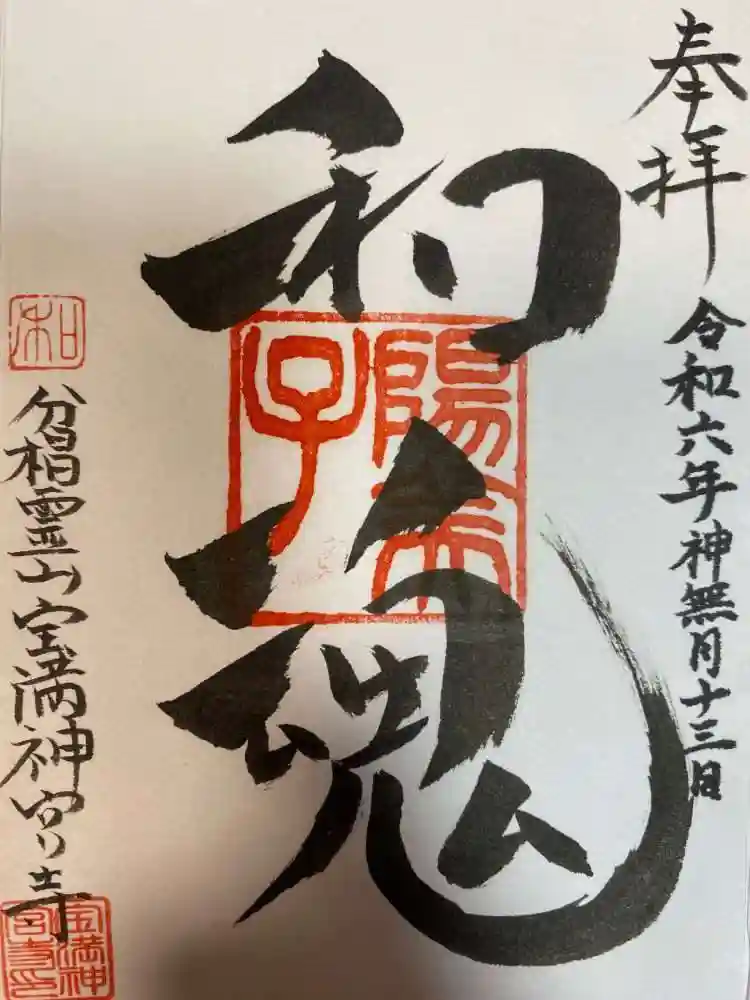 奉拝
令和六年神無月十三日
和魂
和
霊山宝満神宮寺
宝満神
宮寺印